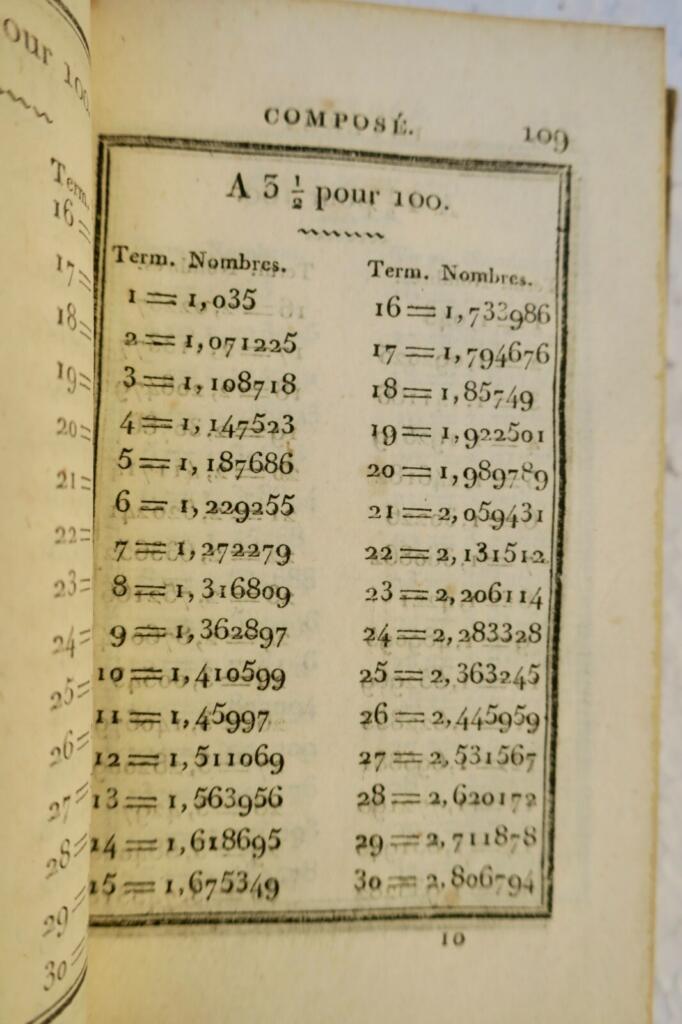 our 100
Term.
16=
17=
18=
19=
20=
21=
22=
23=
24=
25=
26=
27=
28=
29=
30=
COMPOSÉ. 109
A 3 ½ pour 100.
Term. Nombres.
1 = 1,035
2 = 1,071225
3 = 1,108718
4 = 1,147523
5 = 1,187686
6 = 1,229255
7 = 1,272279
8 = 1,316809
9 = 1,362897
10 = 1,410599
11 = 1,45997
12 = 1,511069
13 = 1,563956
14 = 1,618695
15 = 1,675349
Term. Nombres.
16 = 1,733986
17 = 1,794676
18 = 1,85749
19 = 1,922501
20 = 1,989789
21 = 2,059431
22 = 2,131512
23 = 2,206114
24 = 2,283328
25 = 2,363245
26 = 2,445959
27 = 2,531567
28 = 2,620172
29 = 2,711878
30 = 2,806794
10